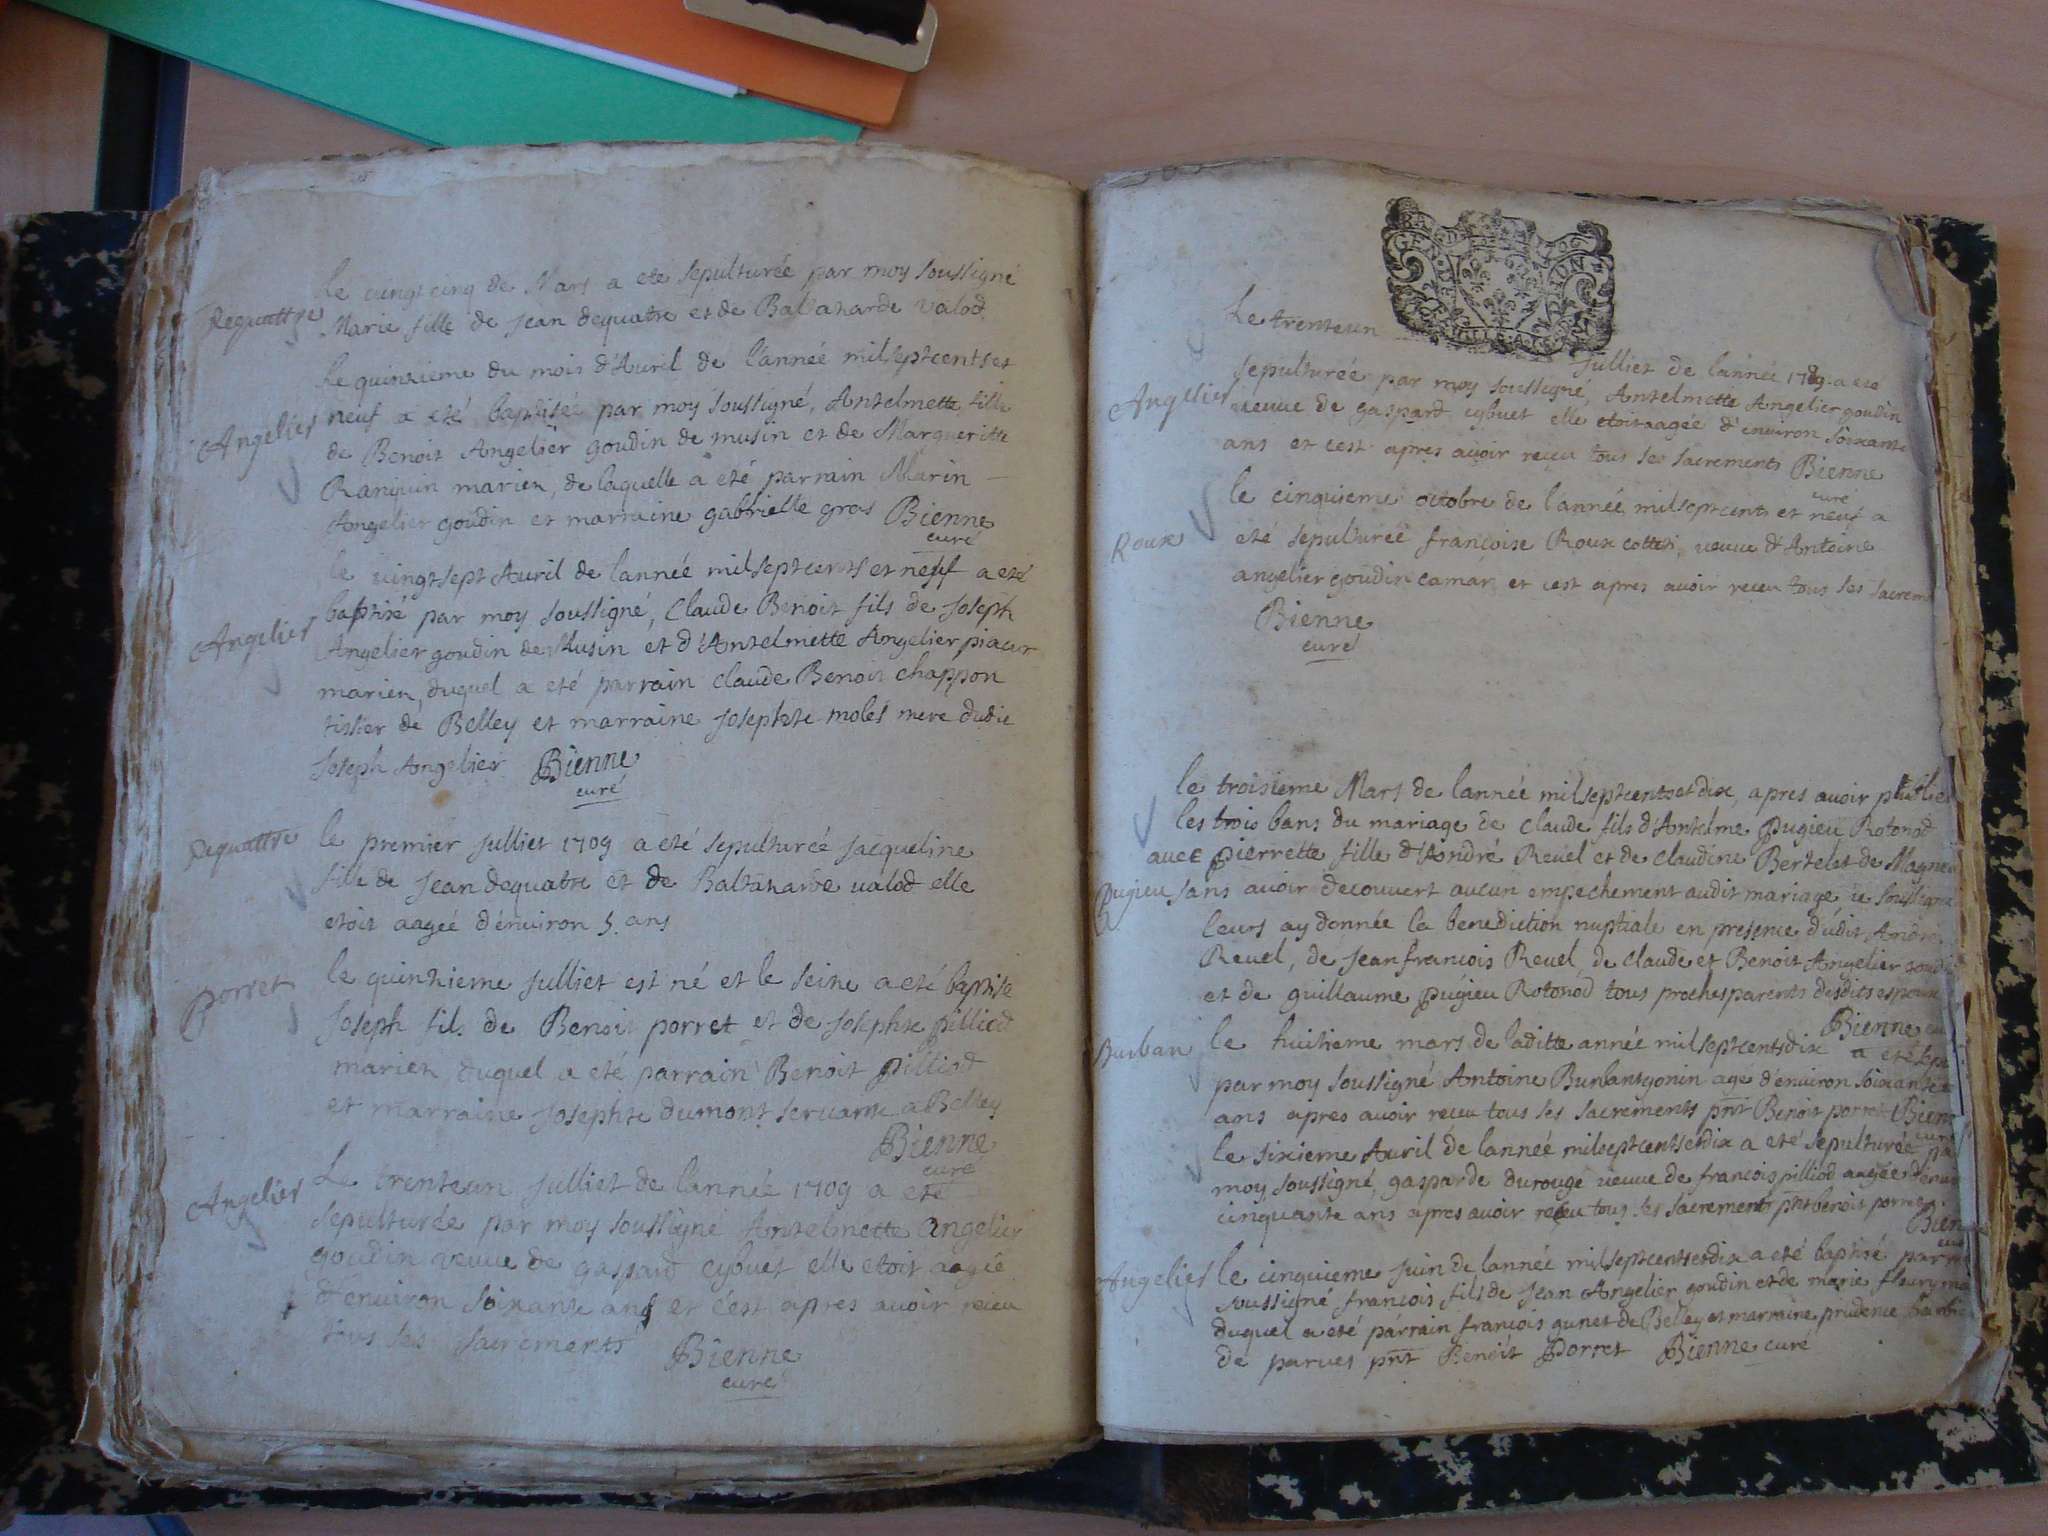 Le vingt cinq de Mars a eté sepulturée par moy soussigné
Dequattre
Marie fille de Jean dequatre et de Baltazarde valod
Le quinzieme du mois d'Avril de l'année mil sept cents et
Angelier
neuf a eté baptisée par moy soussigné, Antelmette fille
de Benoit Angelier goudin de musin et de Marguerite
mariez, de laquelle a eté parrain Marin
Angelier goudin et marraine gabrielle gros Bienne
curé
le vingt sept Avril de l'année mil sept cents et neuf a eté
baptisé par moy soussigné, Claude Benoit fils de Joseph
Angelier
Angelier goudin de Musin et d'Antelmette Angelier
mariez, duquel a eté parrain claude Benoit chappon
tissier de Belley et marraine Josephte molet mere dudit
Joseph Angelier Bienne
curé
Dequattre
le premier Julliet 1709 a eté sepulturée Jacqueline
fille de Jean dequatre et de Baltazarde valod elle
etoit aagée d'environ 5 ans
porret
le quinzieme Julliet est né et le seize a eté baptisé
Joseph fils de Benoit porret et de Josephte pilliod
mariez, duquel a eté parrain Benoit pilliod
et marraine Josephte dumont servante a Belley
Bienne
curé
Angelier
Le trenteun Julliet de l'année 1709 a eté
sepulturée par moy soussigné Antelmette angelier
goudin veuve de gaspard cybuet elle etoit aagée
d'environ soixante ans et c'est apres avoir receu
tous ses sacrements
Bienne
curé
GEN
Le trenteun
Julliet de l'année 1709 a eté
Angelier
sepulturée par moy soussigné, Antelmette Angelier goudin
veuve de gaspard cybuet elle etoit aagée d'environ soixante
ans et c'est apres avoir receu tous ses sacrements Bienne
curé
le cinquieme octobre de l'année mil sept cents et neuf a
Roux
eté sepulturée françoise Roux veuve d'Antoine
angelier goudin camar, et c'est apres avoir receu tous ses sacrem
Bienne
curé
le troisieme Mars de l'année mil sept cents et dix, apres avoir publié
les trois bans du mariage de claude fils d'Antelme Pugieu Rotonod
avec pierrette fille d'André Revel et de claudine Bertelet de
Pugieu
sans avoir decouvert aucun empechement audit mariage ie soussigné
leurs ay donnée la benediction nuptiale en presence dudit André
Revel, de Jean francois Revel de claude et Benoit Angelier goudin
et de guillaume pugieu Rotonod tous proches parents desdits espoux
Bienne
Burban
le huitieme mars de laditte année mil sept cents dix a eté
par moy soussigné Antoine agé d'environ soixante
ans apres avoir receu tous ses sacrements pnt Benoit porret Bienne
curé
le sixieme Avril de l'année mil sept cents et dix a eté sepulturée par
moy soussigné, gasparde durouge veuve de francois pilliod aagée
cinquante ans apres avoir receu tous ses sacrements pnt benoit porret
Bien
Angelier
le cinquieme Juin de l'année mil sept cents et dix a eté baptisé par
soussigné francois fils de Jean Angelier goudin et de marie fleury
duquel a eté parrain francois de Belley et marraine prudence
de parves pnt Benoit Porret Bienne curé